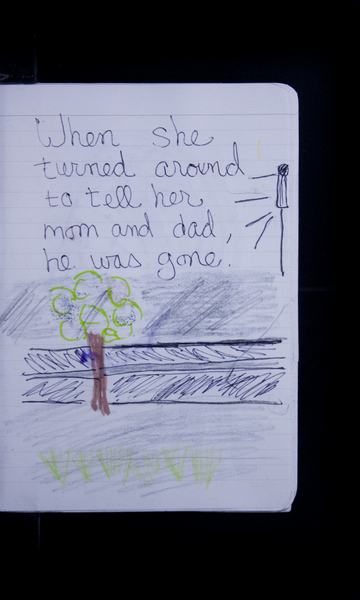 When she
turned around
to tell her
mom and dad,
he was gone.